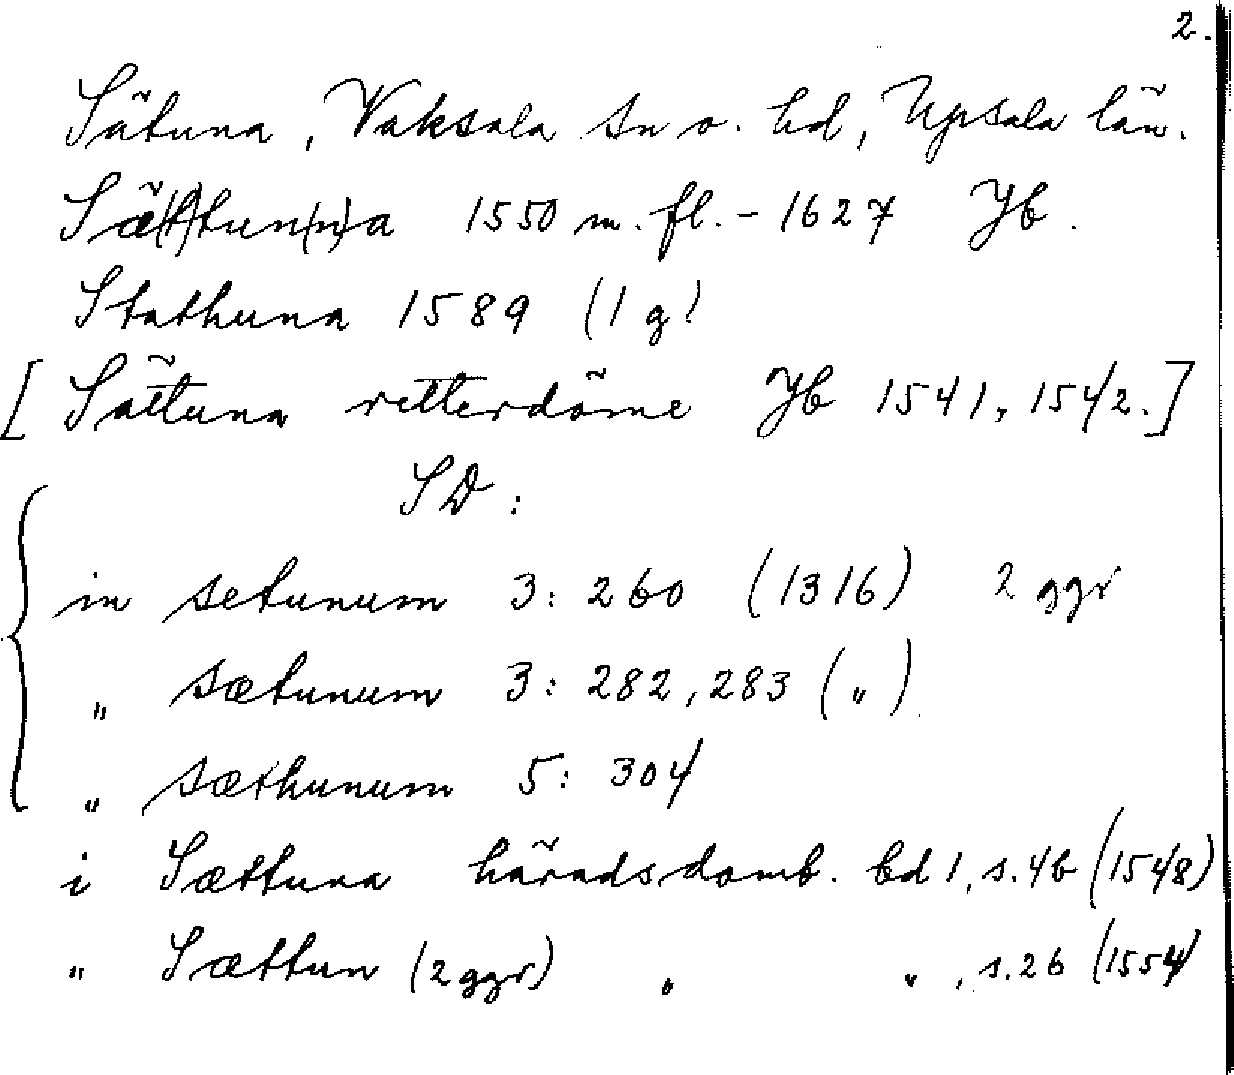 2.
Sätuna, Vaksala sn o. hd, Upsala län.
Sä(t)tun(n)a 1550 m. fl. - 1627 Jb.
Stathuna 1589 (1 g)
[Sättuna retterdöme Jb 1541, 1542.]
SD:
in setunum 3: 260 (1316) 2 ggr
" sætunum 3: 282, 283 (")
" sæthunum 5: 304
i Sættuna häradsdomb. bd 1, s. 46 (1548)
" Sættun (2 ggr) " ", s. 26 (1554)